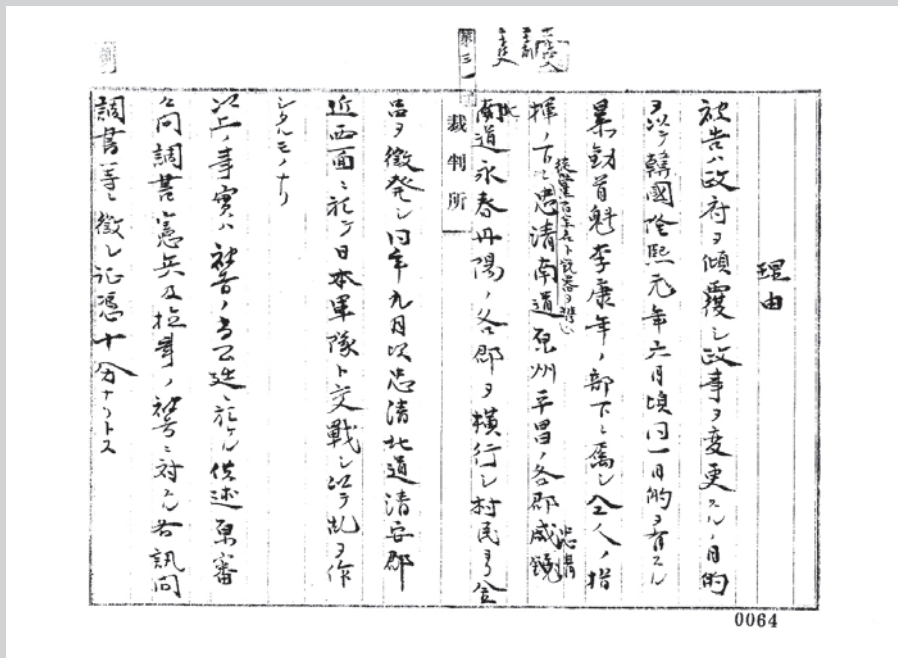 理由
被告ハ政府ヲ傾覆シ政事ヲ変更スルノ目的
ヲ以テ韓國隆熙元年六月頃同一目的ヲ有スル
暴動首魁李康年ノ部下ニ属シ仝人ノ指
揮ノ下ニ忠清南道原州平昌ノ各郡咸鏡
忠清
南道永春丹陽ノ各郡ヲ横行シ村民ヨリ金
北
裁判所
品ヲ徴発シ同年九月頃忠清北道清安郡
近西面ニ於テ日本軍隊ト交戦シ以テ乱ヲ作
シタルモノナリ
以上ノ事實ハ被告ノ当公廷ニ於ケル供述原審
公問調書憲兵及検事ノ被告ニ対スル各訊問
調書等ニ徴シ証憑十分ナリトス
0064